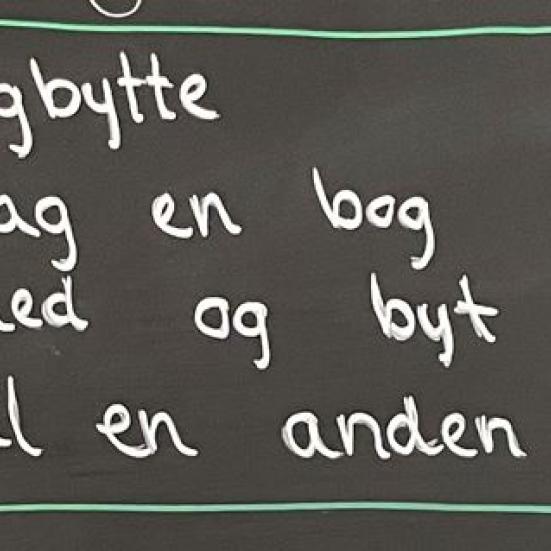 gbytte
ag en bog
ed og byt
l en anden